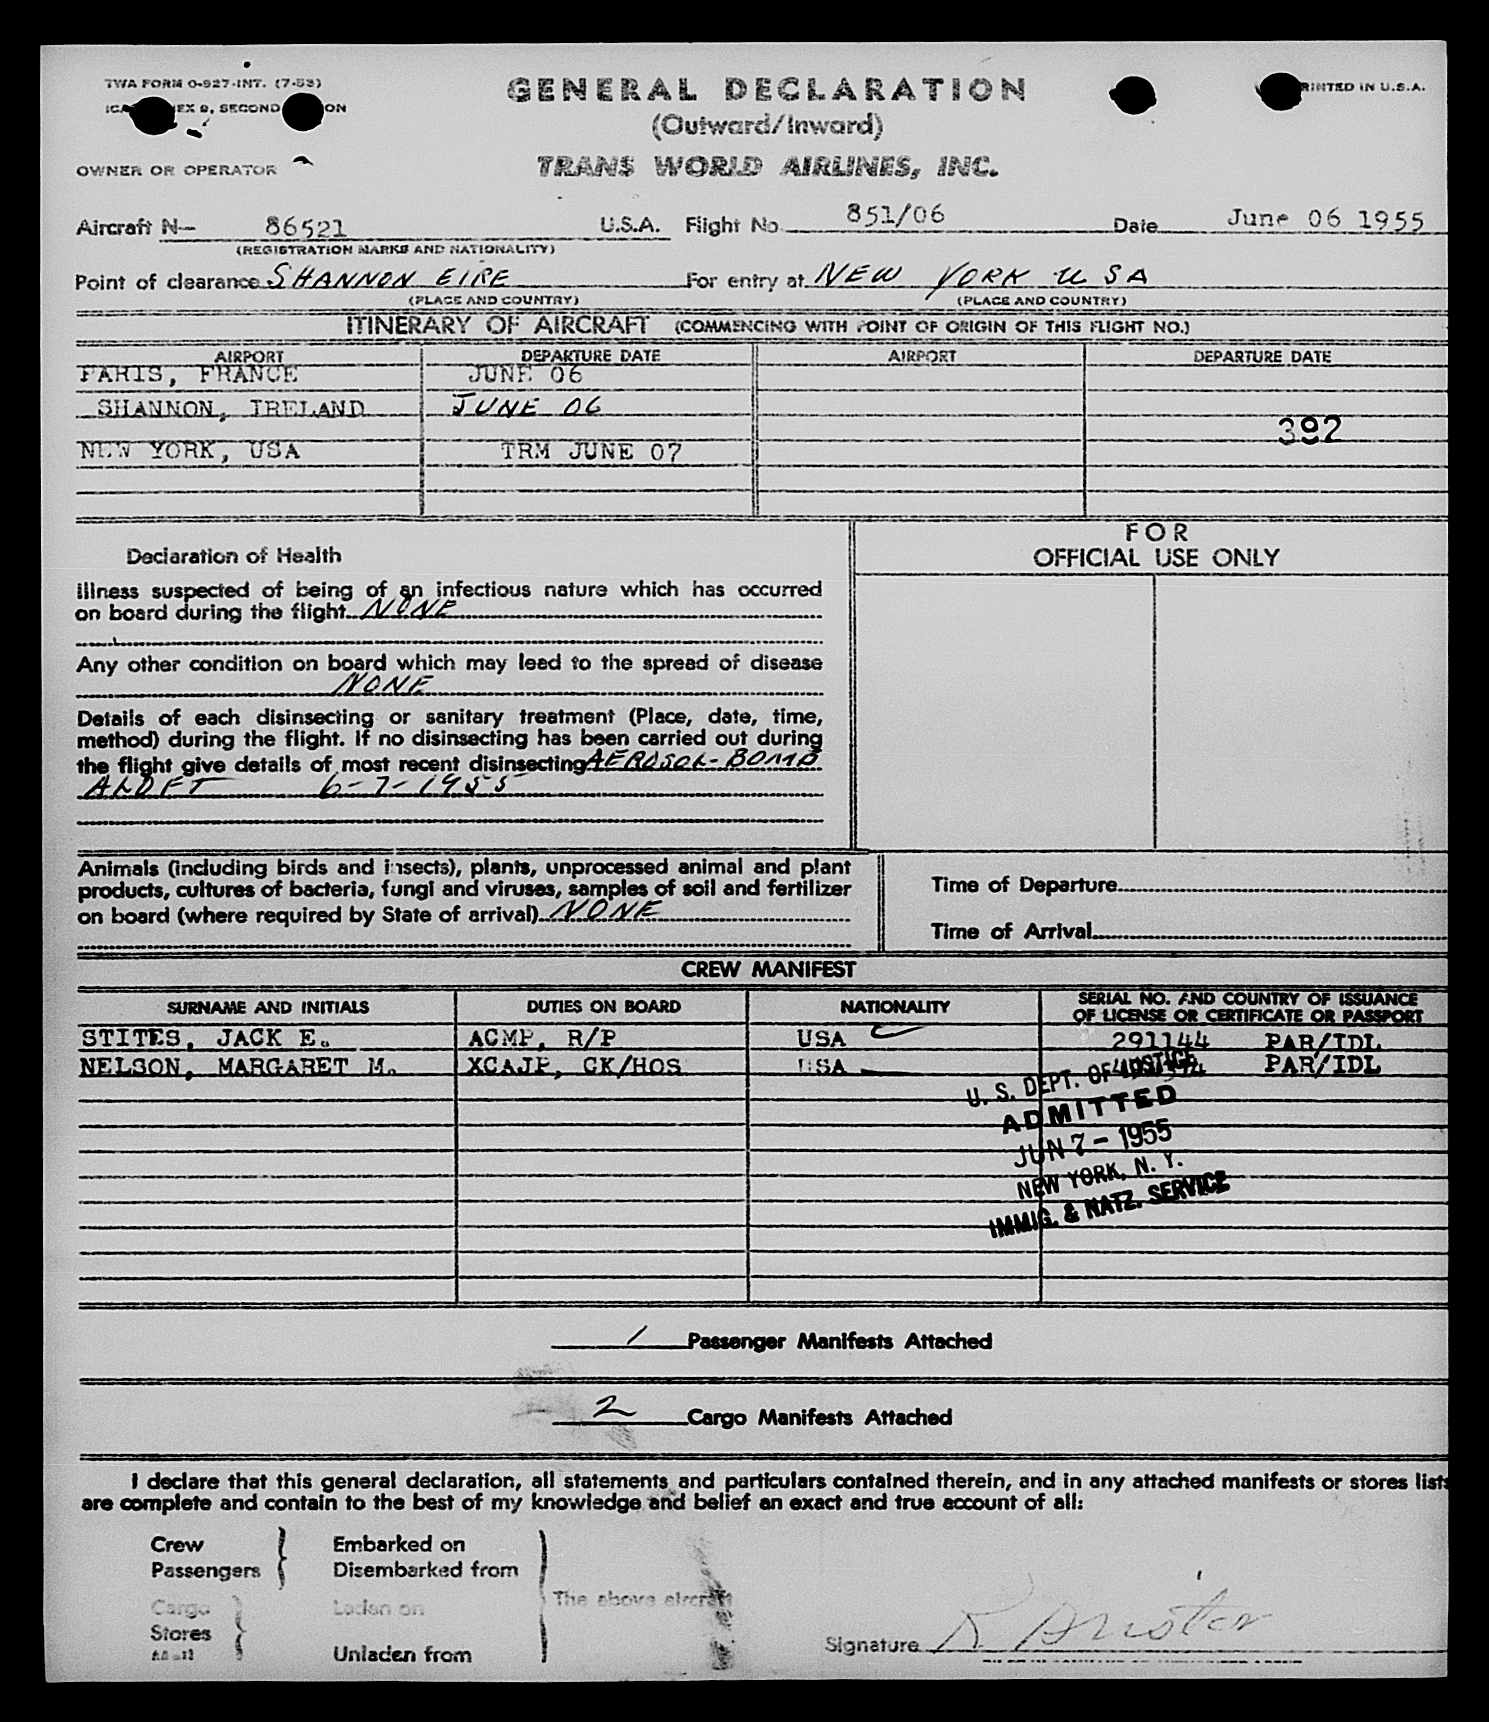 TWA FORM O-927-INT. (7-53)
GENERAL DECLARATION
PRINTED IN U.S.A.
SECOND
(Outward/Inward)
OWNER OR OPERATOR
TRANS WORLD AIRLINES, INC.
Aircraft N- 86521 U.S.A. Flight No. 851/06 Date June 06 1955
(REGISTRATION MARKS AND NATIONALITY)
Point of clearance SHANNON EIRE For entry at NEW YORK USA
(PLACE AND COUNTRY) (PLACE AND COUNTRY)
ITINERARY OF AIRCRAFT (COMMENCING WITH POINT OF ORIGIN OF THIS FLIGHT NO.)
AIRPORT DEPARTURE DATE AIRPORT DEPARTURE DATE
PARIS, FRANCE JUNE 06
SHANNON, IRELAND JUNE 06
392
NEW YORK, USA TRM JUNE 07
FOR
OFFICIAL USE ONLY
Declaration of Health
Illness suspected of being of an infectious nature which has occurred
on board during the flight NONE
Any other condition on board which may lead to the spread of disease
NONE
Details of each disinsecting or sanitary treatment (Place, date, time,
method) during the flight. If no disinsecting has been carried out during
the flight give details of most recent disinsecting AEROSOL-BOMB
ALOFT 6-7-1955
Animals (including birds and insects), plants, unprocessed animal and plant
products, cultures of bacteria, fungi and viruses, samples of soil and fertilizer
on board (where required by State of arrival) NONE
Time of Departure
Time of Arrival
CREW MANIFEST
SURNAME AND INITIALS DUTIES ON BOARD NATIONALITY SERIAL NO. AND COUNTRY OF ISSUANCE
OF LICENSE OR CERTIFICATE OR PASSPORT
STITES, JACK E. ACMP, R/P USA 291144 PAR/IDL
NELSON, MARGARET M. XCAJP, CK/HOS USA PAR/IDL
U. S. DEPT. OF JUSTICE
ADMITTED
JUN 7 - 1955
NEW YORK, N. Y.
IMMIG. & NATZ. SERVICE
1 Passenger Manifests Attached
2 Cargo Manifests Attached
I declare that this general declaration, all statements and particulars contained therein, and in any attached manifests or stores lists
are complete and contain to the best of my knowledge and belief an exact and true account of all:
Crew Embarked on
Passengers Disembarked from
Cargo Laden on The above aircraft
Stores
Mail Unladen from
Signature